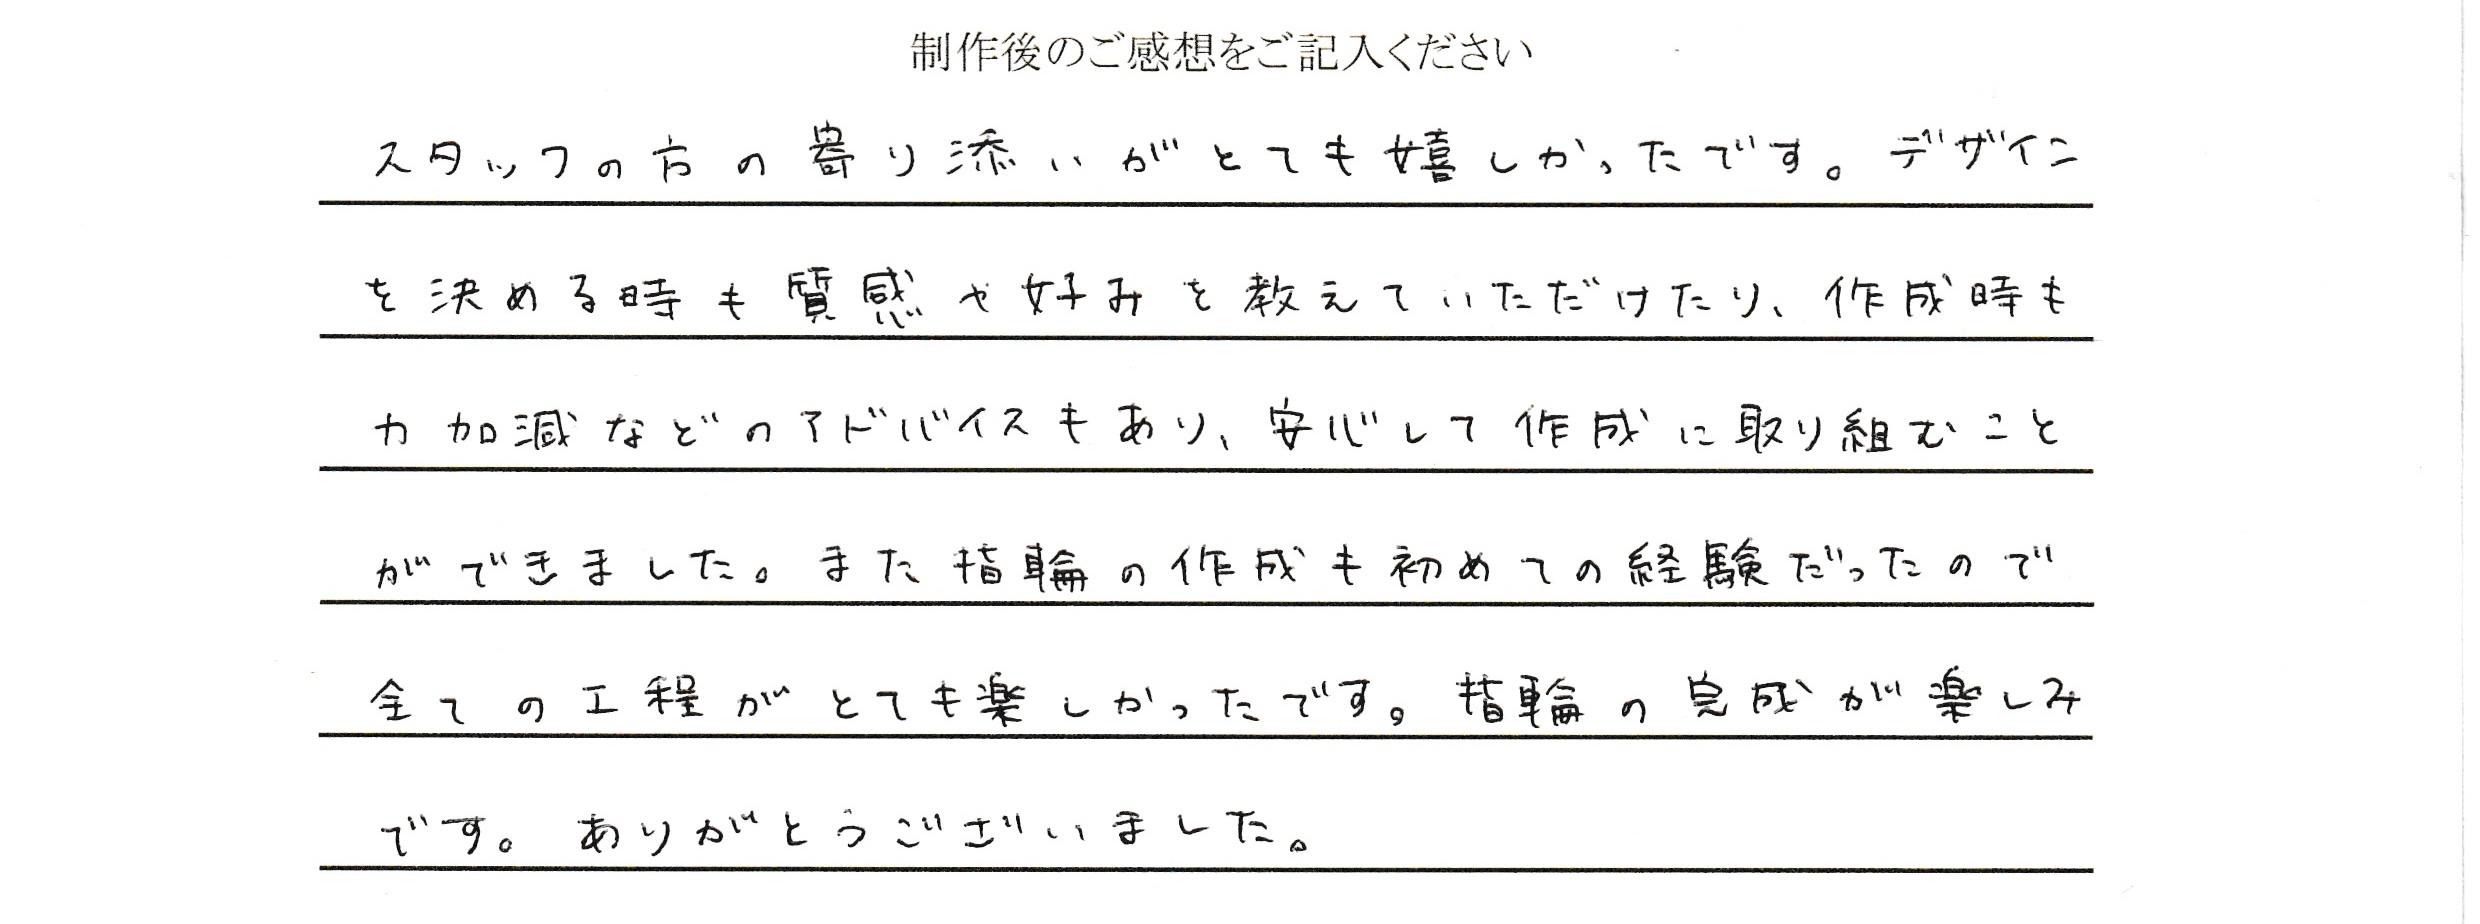 制作後のご感想をご記入ください
スタッフの方の寄り添いがとても嬉しかったです。デザイン
を決める時も質感や好みを教えていただけたり、作成時も
力加減などのアドバイスもあり、安心して作成に取り組むこと
ができました。また指輪の作成も初めての経験だったので
全ての工程がとても楽しかったです。指輪の完成が楽しみ
です。ありがとうございました。